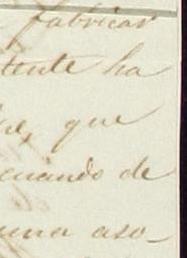 fabricar
tente ha
que
cuando de
una aso-